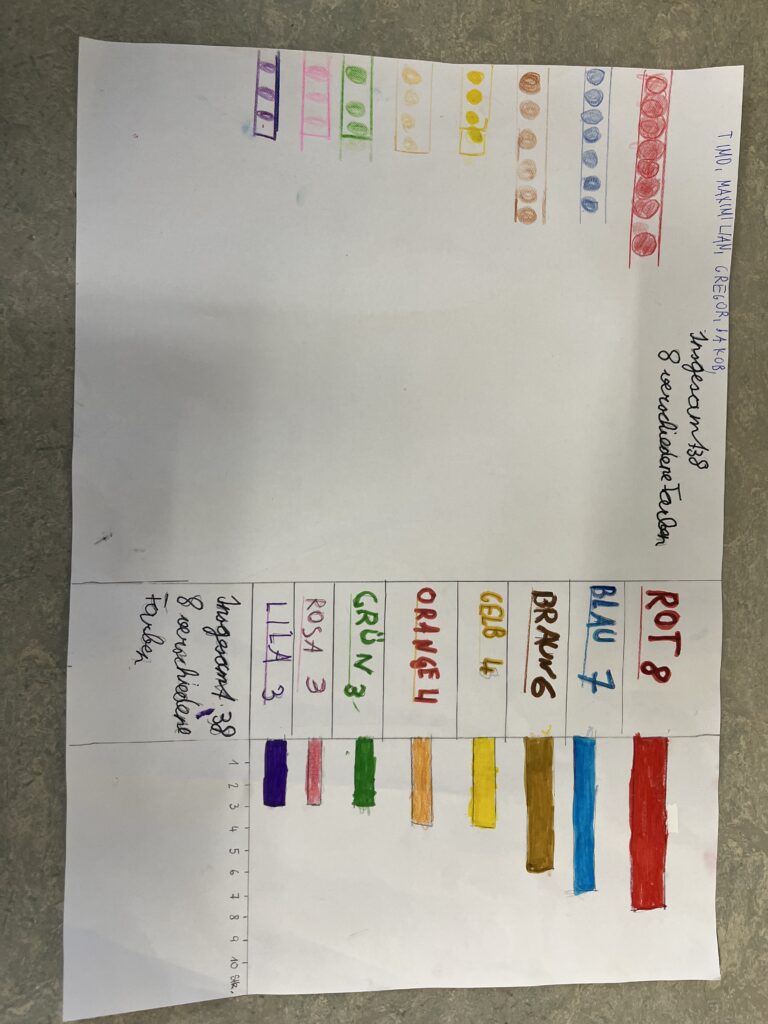 TIMO, MAXIMILIAN, GREGOR, JAKOB,
Insgesamt 38
8 verschiedene Farben
ROT 8
BLAU 7
BRAUN 6
GELB 4
ORANGE 4
GRÜN 3
ROSA 3
LILA 3
Insgesamt: 38
8 verschiedene
Farben
1 2 3 4 5 6 7 8 9 10 Stk.